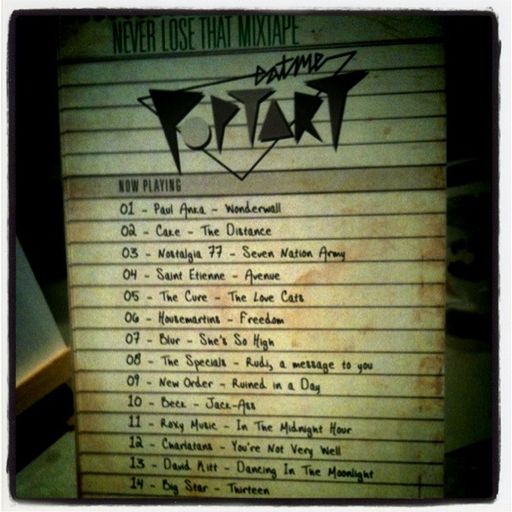 NEVER LOSE THAT MIXTAPE
eatme
POPTART
NOW PLAYING
01 - Paul Anka - Wonderwall
02 - Cake - The Distance
03 - Nostalgia 77 - Seven Nation Army
04 - Saint Etienne - Avenue
05 - The Cure - The Love Cats
06 - Housemartins - Freedom
07 - Blur - She's So High
08 - The Specials - Rudi, a message to you
09 - New Order - Ruined in a Day
10 - Beck - Jack-Ass
11 - Roxy Music - In The Midnight Hour
12 - Charlatans - You're Not Very Well
13 - David Kitt - Dancing In The Moonlight
14 - Big Star - Thirteen